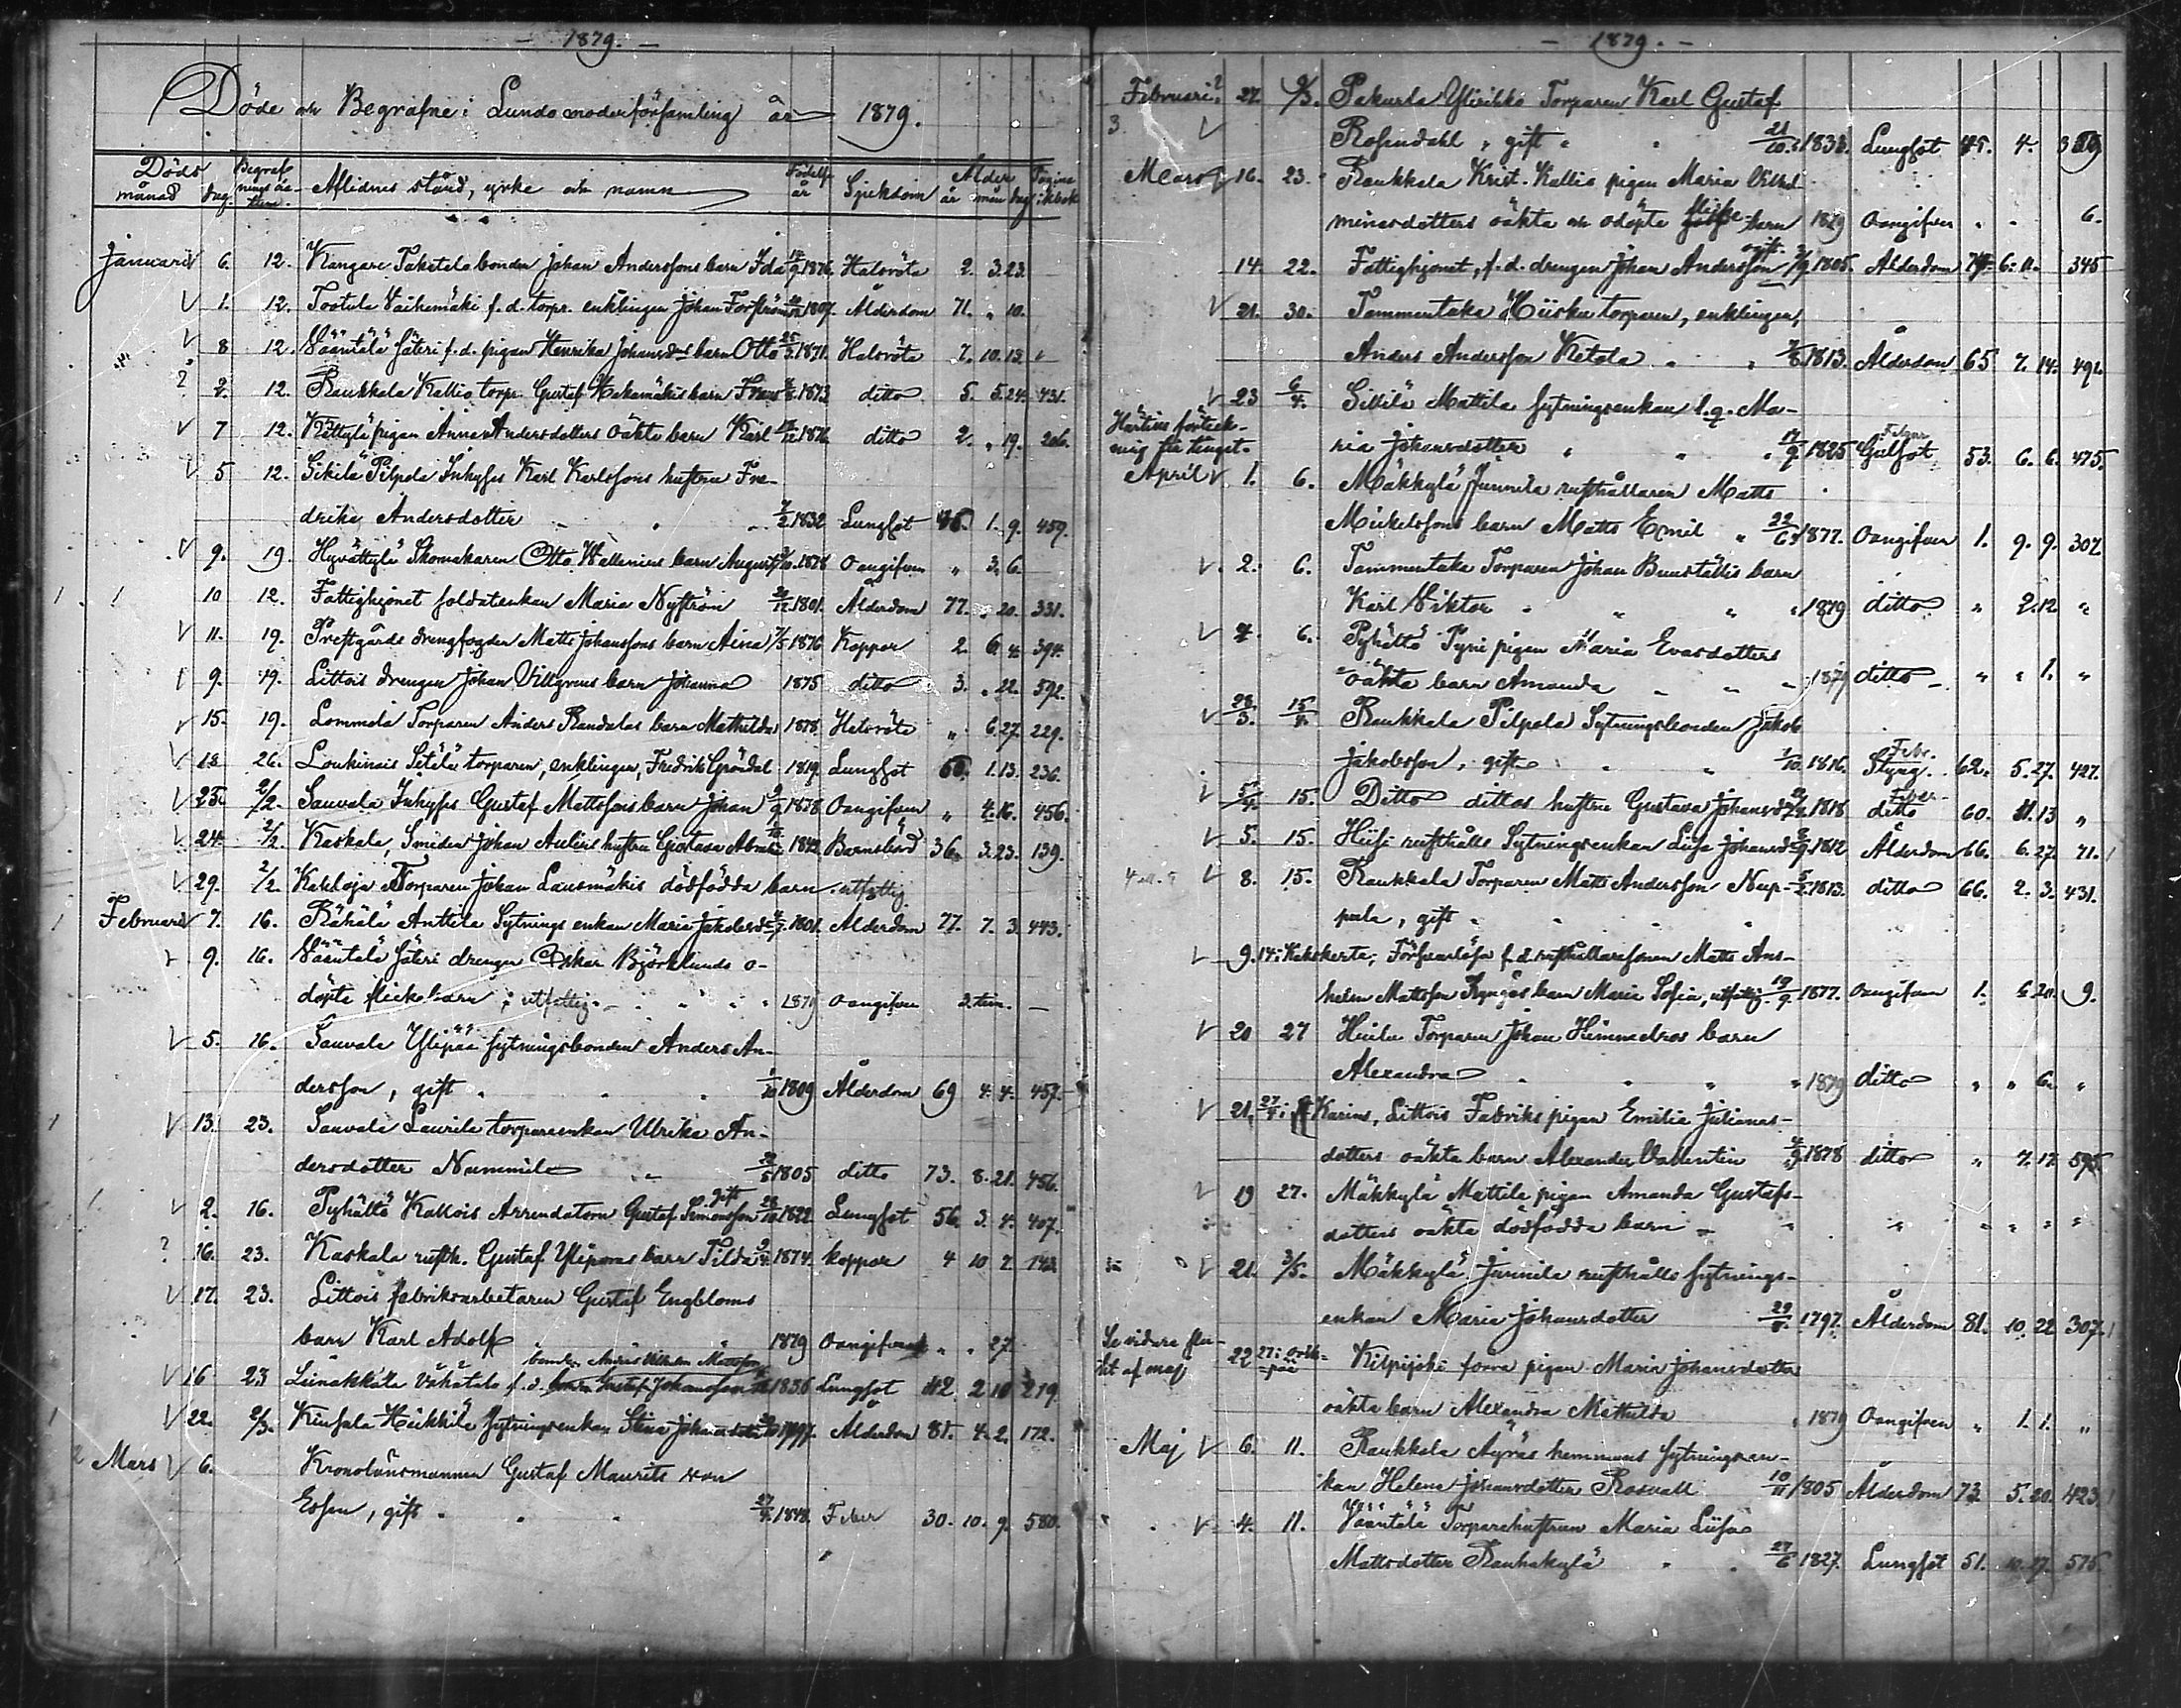 - 1879. -
Döde och Begrafne i Lundo moderförsamling år 1879.
Döds månad dag. Begrafningsdatum. Aflidnes stånd, yrke och namn Födelse år Sjukdom Ålder år mån dag Pagina i kb.
Januari 6. 12. Kangare Takatalo bonden Johan Anderssons barn Ida 1876. Halsröta 2. 3. 23.
1. 12. Tootula Vaihemäki f.d. torp. enklingen Johan Forsström 1807. Ålderdom 71. " 10.
8 12. Vääntälä Säteri f.d. pigan Henrika Johansdrs barn Otto 1871. Halsröta 7. 10. 13.
? 2. 12. Raukkala Kallio torp. Gustaf Hakamäkis barn Frans 1873 ditto 5. 5. 24. 431.
7 12. Kättylä pigan Anna Andersdotters oäkta barn Karl 1876. ditto 2. " 19. 206.
5 12. Sikilä Pilpola Inhyses Karl Karlssons hustru Fre-
drika Andersdotter 1832 Lungsot 46. 1. 9. 459.
9. 19. Hyvättylä Skomakaren Otto Wallenius barn August 1878 Oangifven " 3. 6.
10 12. Fattighjonet soldatenkan Maria Nyström 1801. Ålderdom 77. " 20. 331.
11. 19. Prestgårds drengfogden Matts Johanssons barn Aina 7/5 1876 Koppor 2. 6. 4. 394.
9. 19. Littois drengen Johan Villgrens barn Johanna 1875 ditto 3. " 22. 592.
15. 19. Lommola Torparen Anders Randalas barn Mathilda 1878. Halsröta " 6. 27. 229.
18. 26. Loukinais Setälä torparen, enklingen, Fredrik Gröndal 1819. Lungsot 60. 1. 13. 236.
25. 2/2. Sauvala Inhyses Gustaf Mattssons barn Johan 1878 Oangifven " 4. 16. 456.
24. 2/2. Kaskala, Smeden Johan Aulins hustru Gustava Abrms 1842 Barnsbörd 36. 3. 23. 139.
29. 2/2. Kakloja Torparen Johan Lausmäkis dödfödda barn. utfattig.
Februari 7. 16. Rähälä Anttila Sytnings enkan Maria Jakobsd 1801. Ålderdom 77. 7. 3. 443.
9. 16. Vääntälä Säteri drengen Oskar Björklunds o-
döpta flickebarn; utfattig. 1879 Oangifven 3. tim. —
5. 16. Sauvala Ylipää sytningsbonden Anders An-
dersson, gift 1809 Ålderdom 69 4. 4. 457.
13. 23. Sauvala Laurila torpareenkan Ulrika An-
dersdotter Nummila 1805 ditto 73. 8. 21. 456.
2. 16. Pyhältö Kallois Arrendatorn Gustaf Simonsson gift 1822. Lungsot 56. 3. 4. 407.
? 16. 23. Kaskala rusth. Gustaf Ylipaas barn Tilda 1874. koppor 4 10 7. 143.
17. 23. Littois fabriksarbetaren Gustaf Engbloms
barn Karl Adolf 1879 Oangifven " " 27.
bonden Anders Vilhelm Mattsson
16 23 Liinakkala Vähätalo f.d. Gustaf Johansson 1836 Lungsot 42. 2 10 219.
22. 2/3. Keusala Heikkilä Sytningsenkan Stina Johansdr 1797. Ålderdom 81. 4. 2. 172.
Mars 6. Kronolänsmannen Gustaf Maurits von
Essen, gift 27/4. 1848. Feber 30. 10. 9. 580.
- 1879. -
Februari 27. 9/3. Pakurla Yliriikko Torparen Karl Gustaf
Rosendahl, gift 21/10. 1833. Lungsot 45. 4.
Mars 16. 23. Raukkala Krist. Kallis pigan Maria Vilhel-
minasdotters oäkta och odöpta flicke-barn 1879 Oangifven " " 6.
14. 22. Fattighjonet, f.d. drengen Johan Andersson ogift 1805. Ålderdom 74. 6. 11. 345
21. 30. Tammentaka Hiisku torparen, enklingen,
Anders Andersson Ketola 1813. Ålderdom 65 7. 14. 492.
23 6/4. Sikilä Mattila sytningsenkan l.q. Ma-
ria Johansdotter 17/9 1825 Gulsot Feber 53. 6. 6. 475.
April 1. 6. Mäkkylä Junnila rusthållaren Matts
Mickelssons barn Matts Emil 22/6 1877. Oangifven 1. 9. 9. 307.
2. 6. Tammentaka Torparen Johan Buuställis barn
Karl Viktor 1879 ditto " 2. 12 "
4. 6. Pyhältö Pyni pigan Maria Evasdotters
oäkta barn Amanda 1879 ditto " " 1. "
28/3. 15/4. Raukkala Pilpola Sytningsbonden Jakob
Jakobsson, gift 1/10. 1816. Febr. Styng. 62. 5. 27. 427.
5/4. 15. Ditto dittos hustru Gustava Johansd 1818 Feber ditto 60. 11. 13 "
5. 15. Hiisi rusthålls Sytningsenkan Lisa Johansd 1812 Ålderdom 66. 6. 27. 71.
8. 15. Raukkala Torparen Matts Andersson Nup- 1813. ditto 66. 2. 3. 431.
pala, gift
9. 14 i Kakskerta, Försvarslöse f.d. rusthållaresonen Matts Ans-
helm Mattsson Ryngös barn Maria Sofia, utfattig 19/9. 1877. Oangifven 1. 6. 20. 9.
20 27 Heilu Torparen Johan Himmelros barn
Alexandra 1879 ditto " " 6. "
21. 27/4 i Karins, Littois Fabriks pigan Emilia Julianas-
dotters oäkta barn Alexander Valentin 1878 ditto " 7. 17. 595.
19 27. Mäkkylä Mattila pigan Amanda Gustafs-
dotters oäkta dödfödda barn
21. 3/5. Mäkkylä Junnila rusthålls sytnings-
enkan Maria Johansdotter 29/5. 1797. Ålderdom 81. 10. 22 307.
Se vidare slu-
tet af maj 22 Kilpijoki forra pigan Maria Johansdotter
oäkta barn Alexandra Mathilda 1879 Oangifven " 1. 1. "
Maj 6. 11. Raukkala Ayräs hemmans sytningsen-
kan Helena Johansdotter Rosvall 10/11 1805 Ålderdom 73 5. 20. 423.
4. 11. Vääntälä Torparehustrun Maria Lisa
Mattsdotter Rauhakylä 27/6 1827. Lungsot 51. 10. 17. 575.